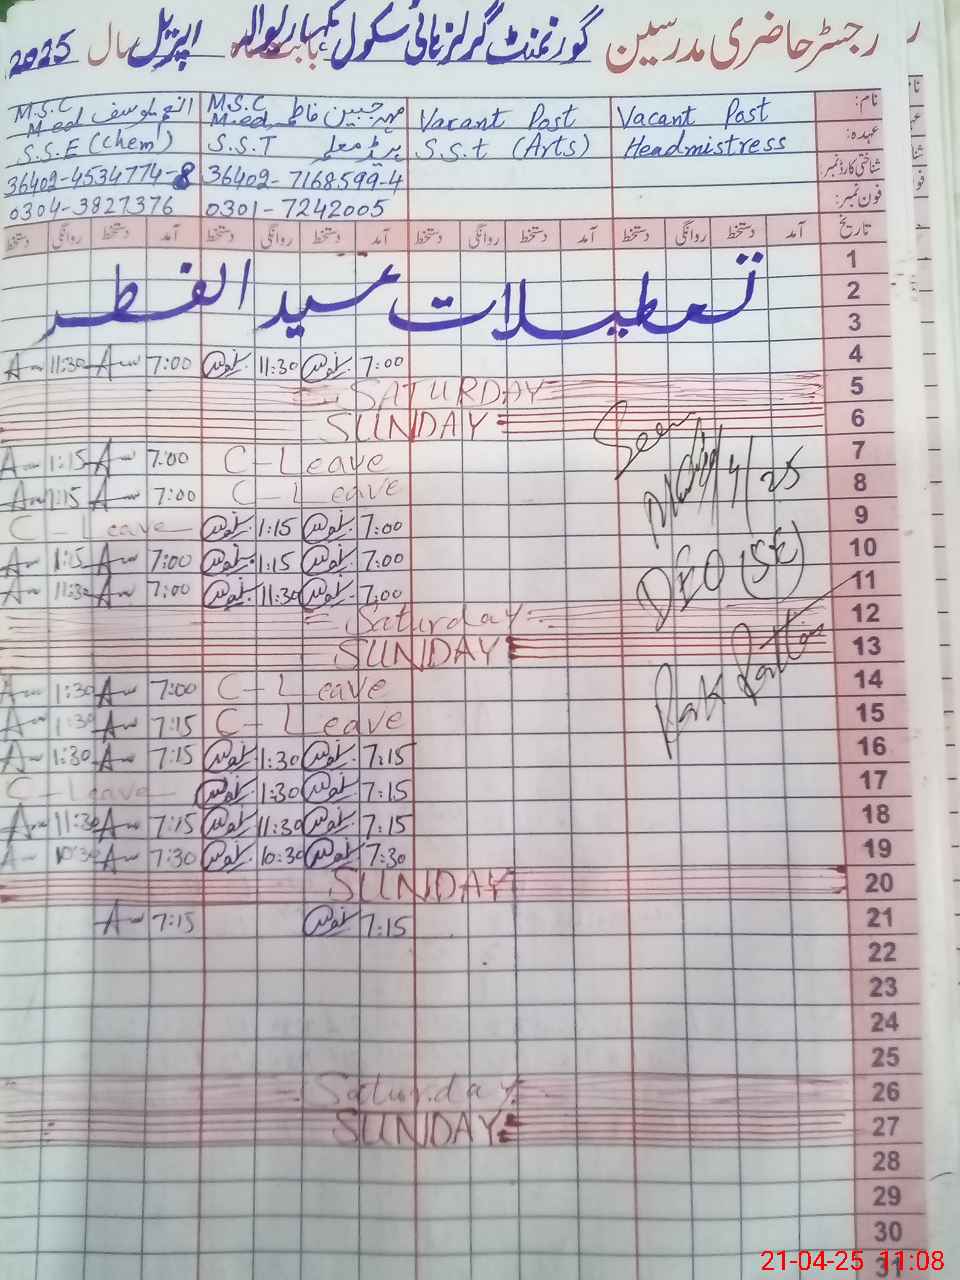 رجسٹر حاضری مدرسین گورنمنٹ گرلز ہائی سکول بابت ماہ اپریل سال 2025
نام: Vacant Post Vacant Post M.S.C M.ed مہ جبین فاطمہ M.S.C M.ed انجم یوسف
عہدہ: Headmistress S.S.t (Arts) S.S.T ہیڈ معلمہ S.S.E (Chem)
شناختی کارڈ نمبر: 36402-7168599-4 36402-4534774-8
فون نمبر: 0301-7242005 0304-3827376
تاریخ آمد دستخط روانگی دستخط آمد دستخط روانگی دستخط آمد دستخط روانگی دستخط آمد دستخط روانگی دستخط
1
2 تعطیلات عید الفطر
3
4 7:00 11:30 7:00 11:30
5 SATURDAY
6 SUNDAY
7 C-Leave 7:00 1:15
8 C-Leave 7:00 1:15
9 7:00 1:15 C-Leave
10 7:00 1:15 7:00 1:15
11 7:00 11:30 7:00 11:30
12 Saturday
13 SUNDAY
14 C-Leave 7:00 1:30
15 C-Leave 7:15 1:30
16 7:15 1:30 7:15 1:30
17 7:15 1:30 C-Leave
18 7:15 11:30 7:15 11:30
19 7:30 10:30 7:30 10:30
20 SUNDAY
21 7:15 7:15
22
23
24
25
26 Saturday
27 SUNDAY
28
29
30
31
Seen
4/25
DEO (SE)
Pak Pattan
21-04-25 11:08